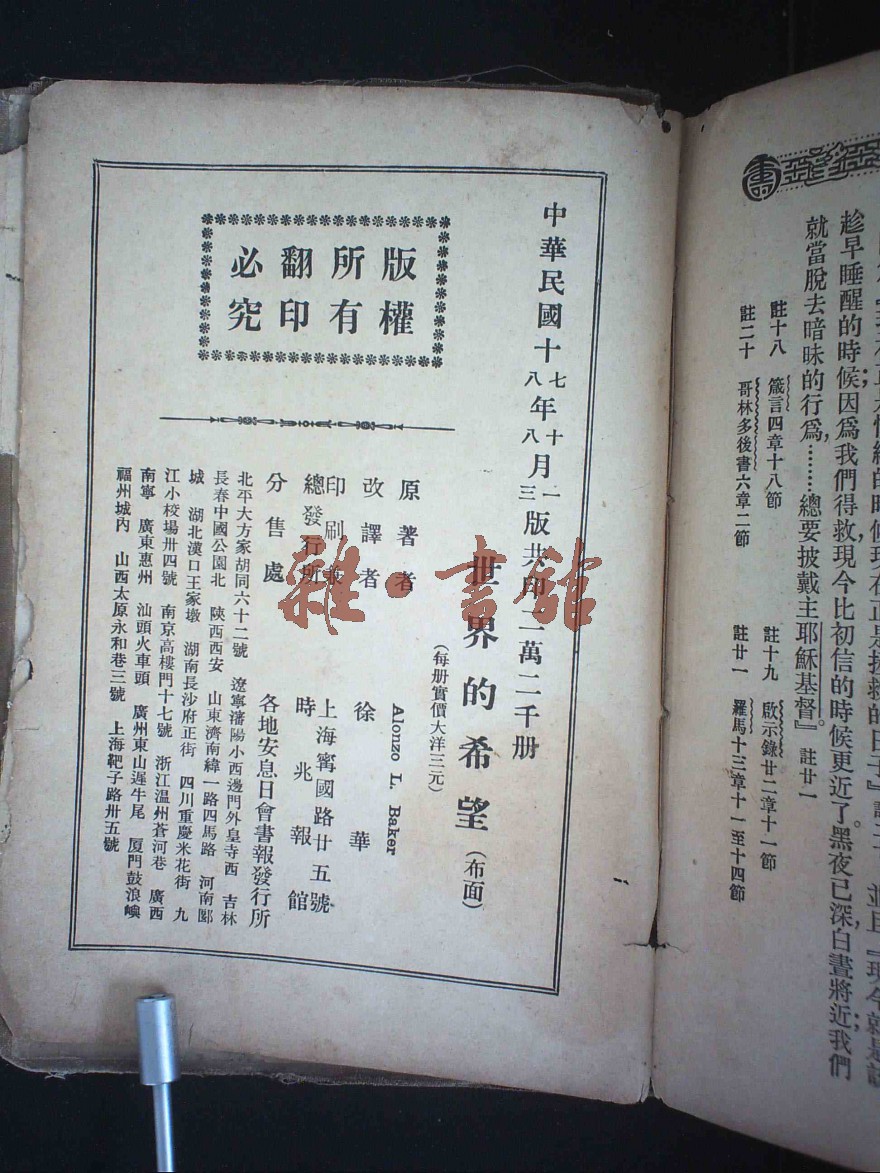 趁早睡醒的時候；因爲我們得救現今比初信的時候更近了。黑夜已深，白晝將近我們；
就當脫去暗昧的行爲，………總要披戴主耶穌基督。』註廿一
註十八 箴言四章十八節 註十九 啟示錄廿二章十一節
註二十 哥林多後書六章二節 註廿一 羅馬十三章十一至十四節
中華民國十七八年十八月一三版共印二萬二千册
世界的希望（布面）
（每册實價大洋三元）
原著者 Alonzo L. Baker
改譯者 徐華
印刷兼 上海寗國路廿五號
總發行所 時兆報館
分售處 各地安息日會書報發行所
北平大方家胡同六十二號 遼寧瀋陽小西邊門外皇寺西 吉林
長春中國公園北 陝西西安 山東濟南緯一路四馬路 河南郾
城 湖北漢口王家墩 湖南長沙府正街 四川重慶米花街 九
江小校場卅四號 南京高樓門十七號 浙江溫州蒼河巷 廣西
南寧 廣東惠州 汕頭火車頭 廣州東山遲牛尾 厦門鼓浪嶼
福州城內 山西太原永和巷三號 上海靶子路卅五號
版權
所有
翻印
必究
雜·書館